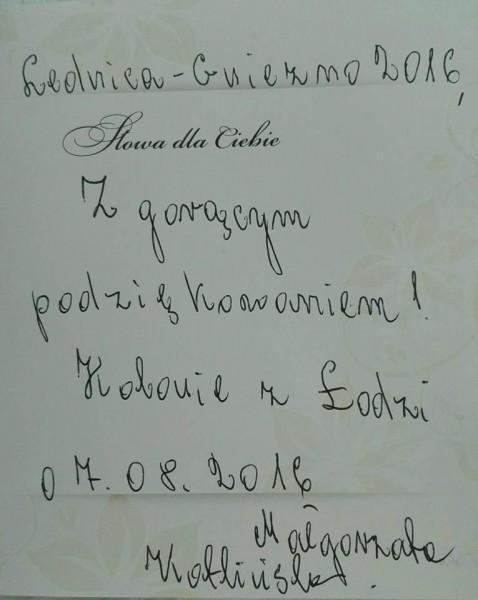 Lednica - Gniezno 2016,
Słowa dla Ciebie
Z gorącym
podziękowaniem!
Kolonie z Łodzi
07.08.2016
Małgorzata